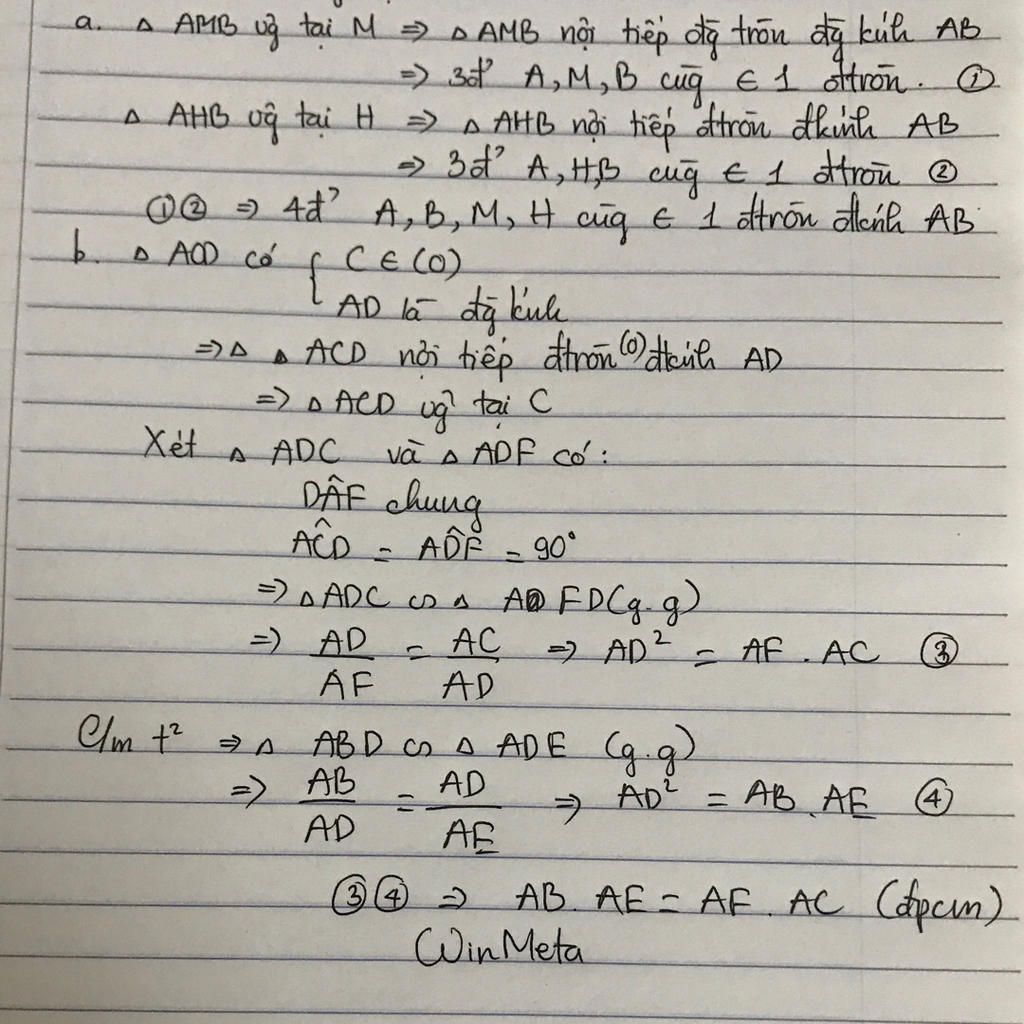 a. △ AMB vg̃ tại M => △ AMB nội tiếp đg̃ tròn đg̃ kính AB
=> 3đ' A, M, B cùg ∈ 1 đtròn. ①
△ AHB vg̃ tại H => △ AHB nội tiếp đtròn đkính AB
=> 3đ' A, H, B cùg ∈ 1 đtròn ②
①② => 4đ' A, B, M, H cùg ∈ 1 đtròn đkính AB
b. △ ACD có { C ∈ (O)
AD là đg̃ kính
=> △ △ ACD nội tiếp đtròn (O) đkính AD
=> △ ACD vg̃ tại C
Xét △ ADC và △ ADF có:
DÂF chung
AĈD = AD̂F = 90°
=> △ ADC ∽ △ AFD (g.g)
=> AD/AF = AC/AD => AD² = AF . AC ③
C/m t² => △ ABD ∽ △ ADE (g.g)
=> AB/AD = AD/AE => AD² = AB . AE ④
③④ => AB. AE = AF . AC (đpcm)
WinMeta